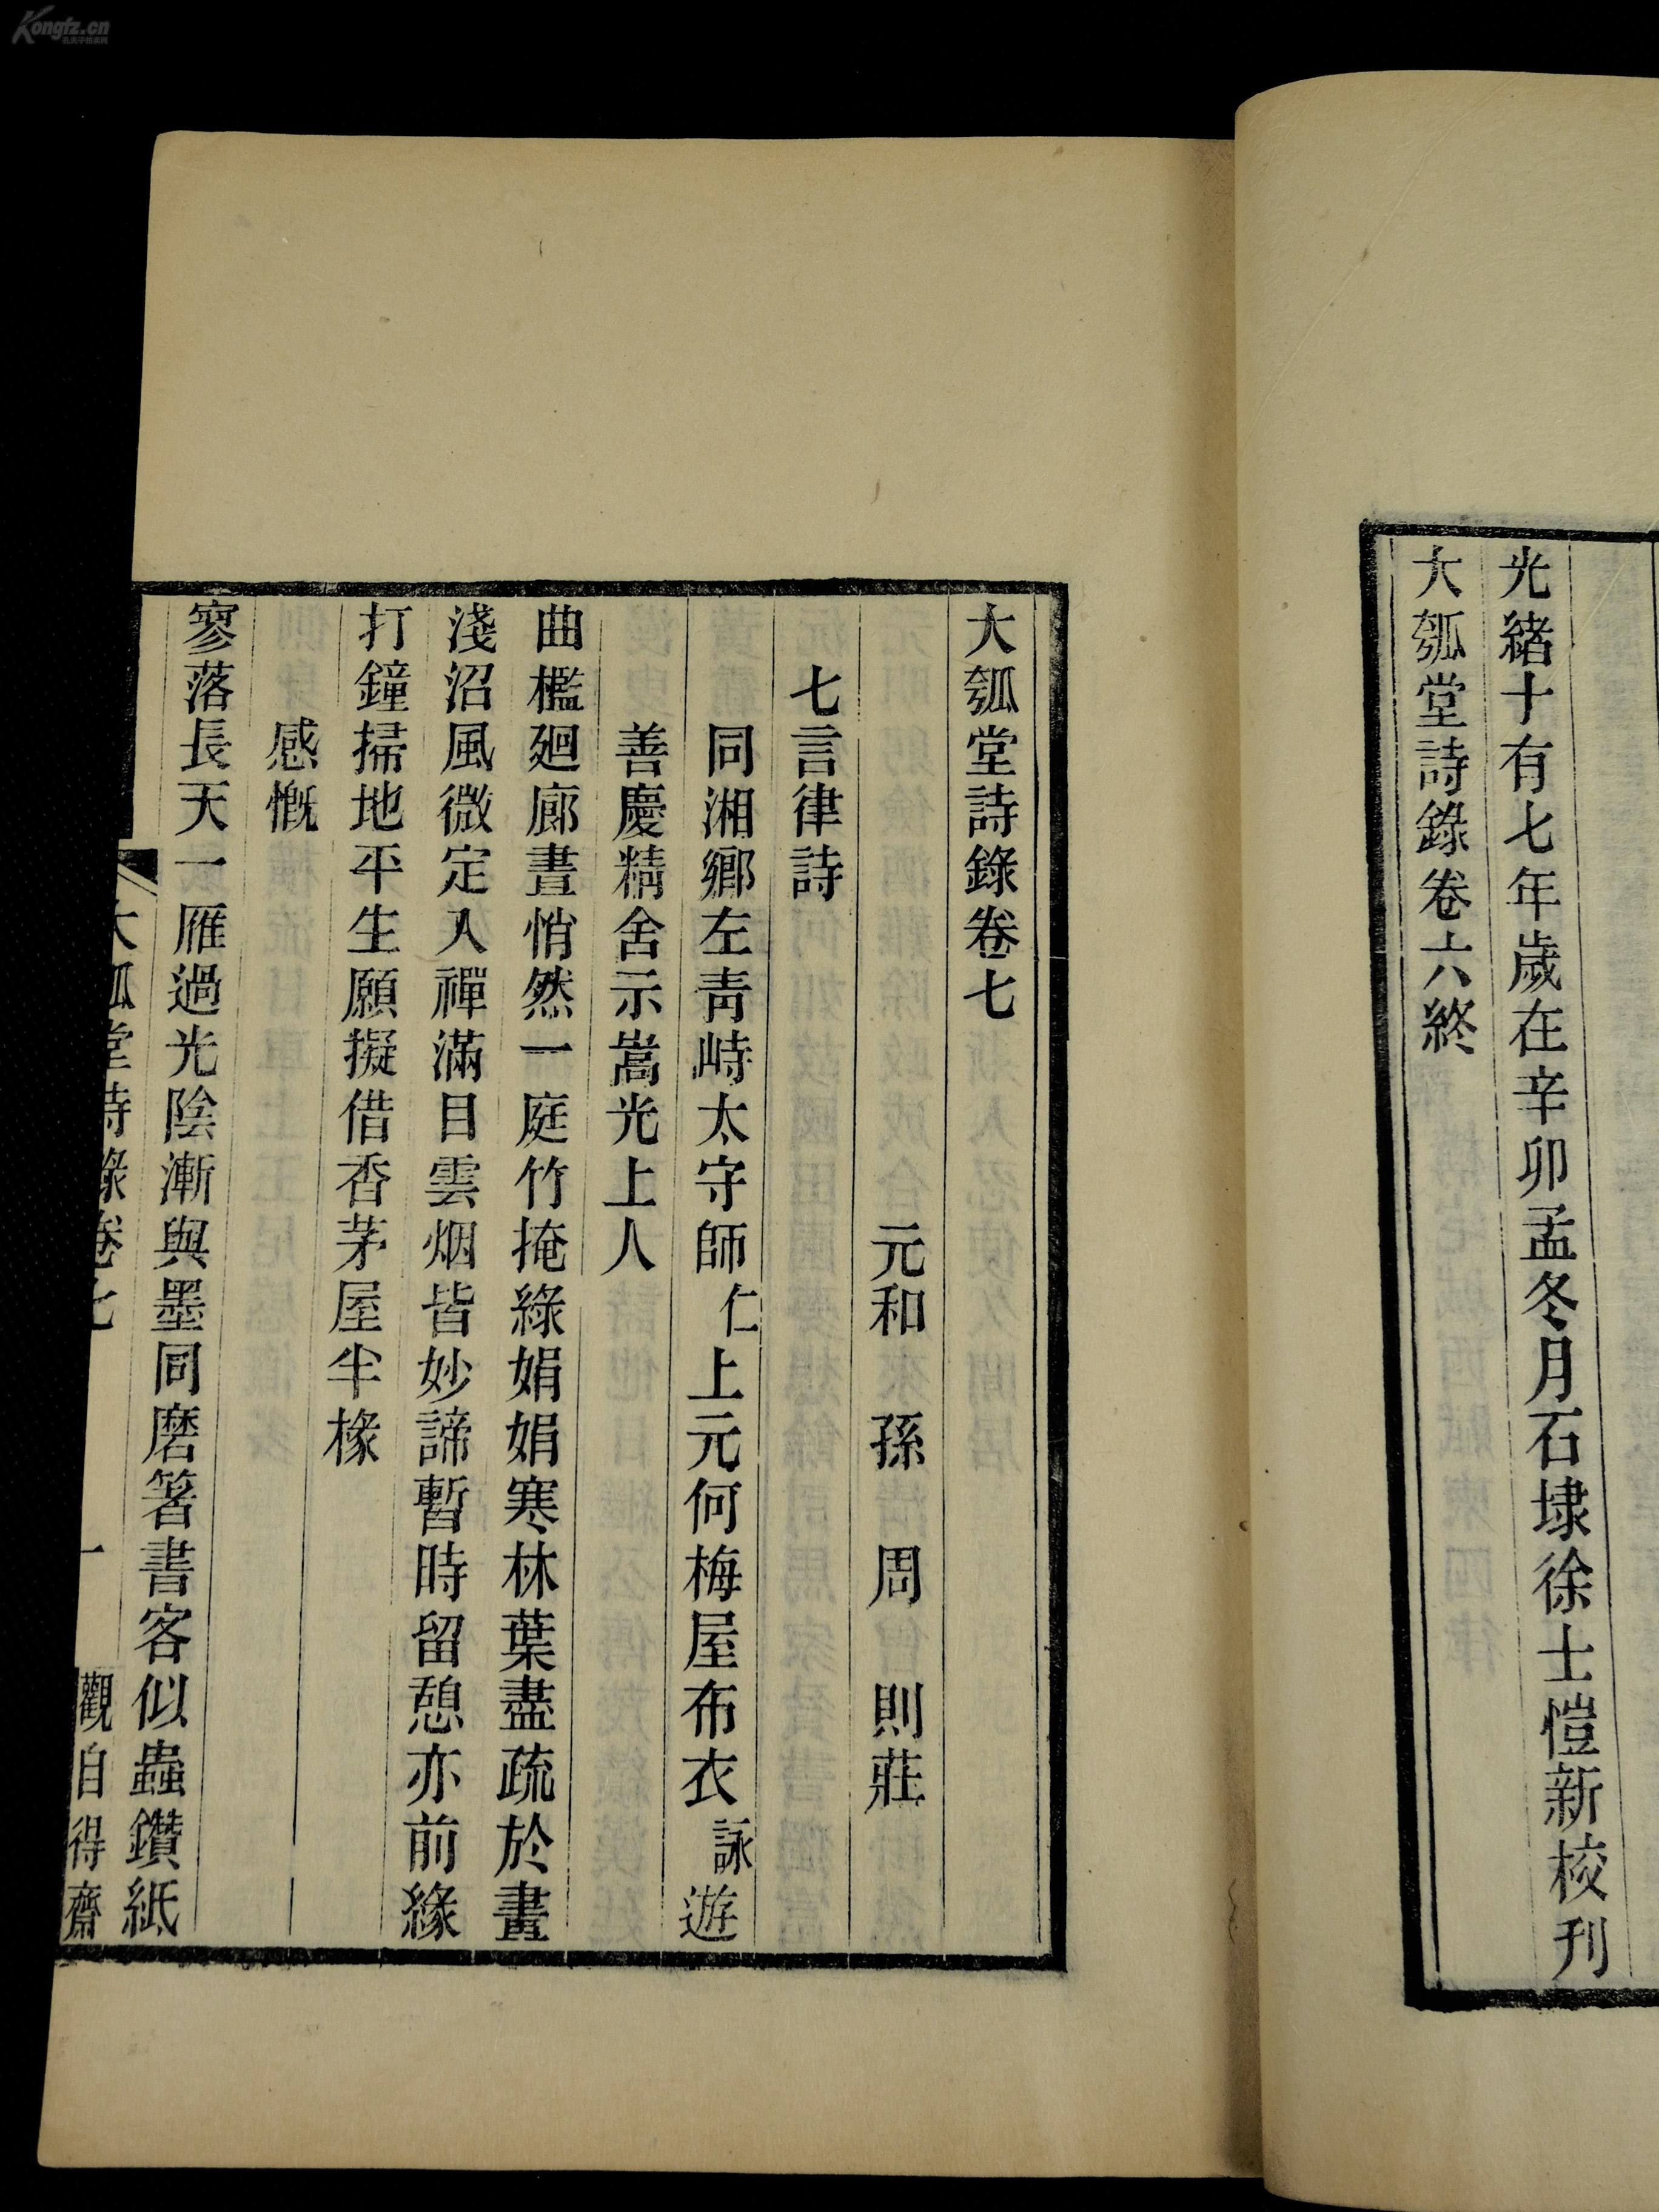 光緒十有七年歲在辛卯孟冬月石埭徐士愷新校刊
大瓠堂詩錄卷六終
大瓠堂詩錄卷七
元和 孫 周 則莊
七言律詩
同湘鄉左青峙太守師仁上元何梅屋布衣詠遊
善慶精舍示嵩光上人
曲檻廻廊晝悄然一庭竹掩綠娟娟寒林葉盡疏於畫
淺沼風微定入禪滿目雲烟皆妙諦暫時留憩亦前緣
打鐘掃地平生願擬借香茅屋半椽
感慨
寥落長天一雁過光陰漸與墨同磨箸書客似蟲鑽紙
大瓠堂詩錄卷七
一
觀自得齋
Kongfz.cn